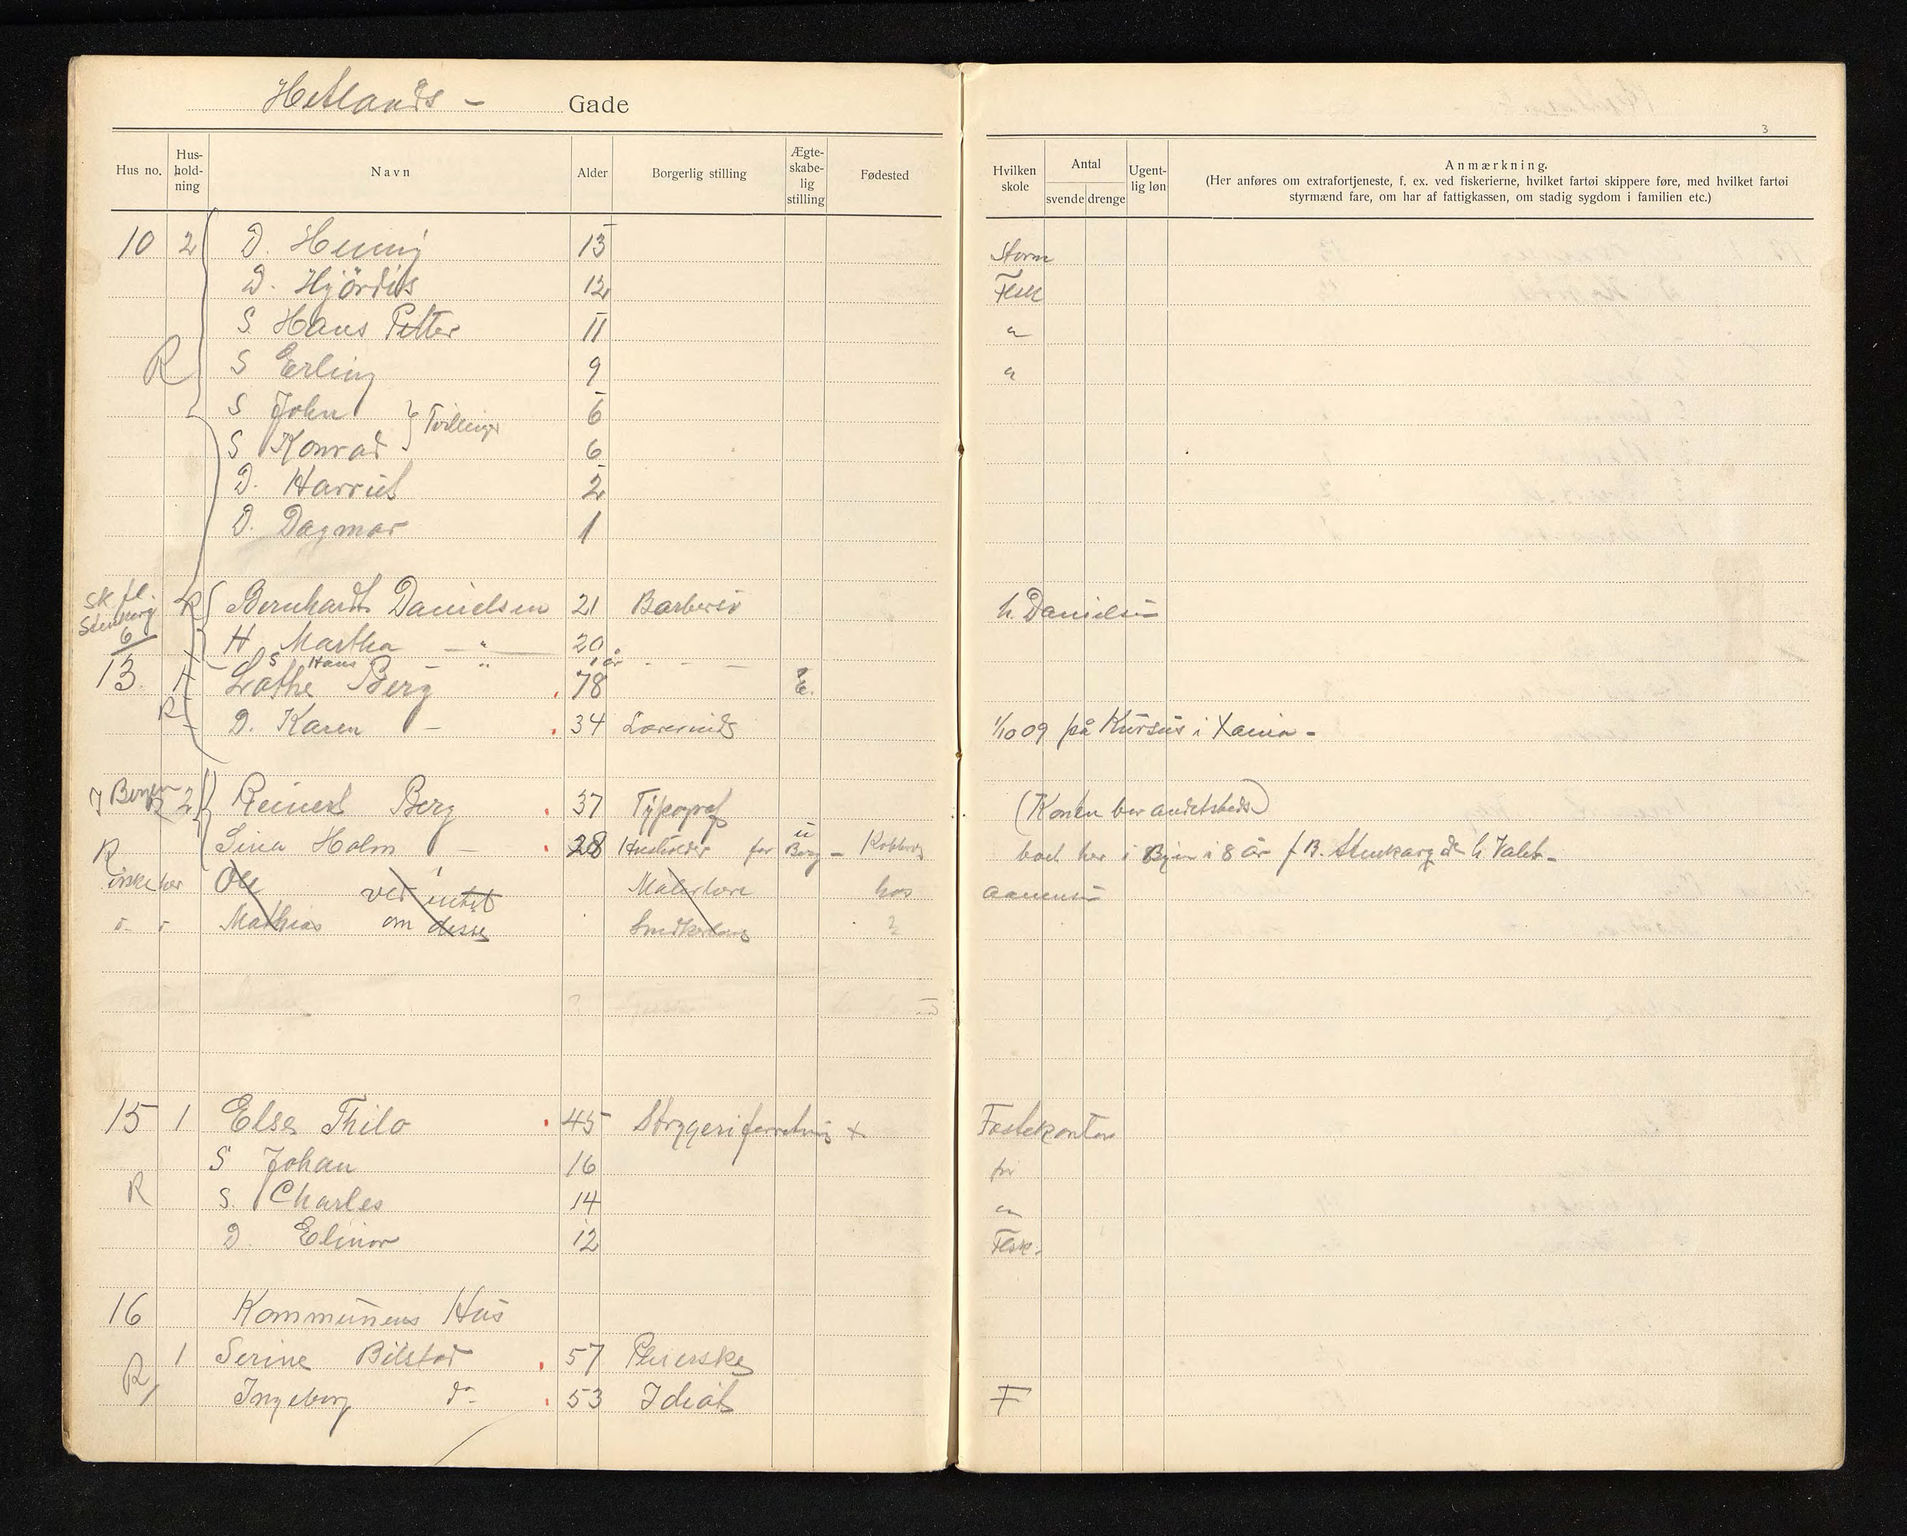 Hetlands - Gade
3
Hus no. Hus-hold-ning Navn Alder Borgerlig stilling Ægte-skabe-lig stilling Fødested Hvilken skole Antal svende drenge Ugent-lig løn Anmærkning.
(Her anføres om extrafortjeneste, f. ex. ved fiskerierne, hvilket fartøi skippere føre, med hvilket fartøi
styrmænd fare, om har af fattigkassen, om stadig sygdom i familien etc.)
10 2 D. Henny 13 Storm
D. Hjördis 12 Flsk
S. Hans Petter 11 "
R S Erling 9 "
S John } Tvillinger 6
S Konrad 6
D. Harriet 2
D. Dagmar 1
Sk fl. Stenkarg 6 R Bernhardt Danielsen 21 Barberer h. Danielsen
H. Martha - " - 20
S Hans - " 1 år - - -
13. 1 Lothe Berg 78 E.
R D. Karen - 34 Lærerinde 1/10 09 på Kursus i Xania -
7 Bergen R 2 Reinert Berg 37 Typograf (Konen bor andetsheds)
R Sina Holm - 28 Husholder for Berg - boet her i Byen i 8 år f B. Stenkarg de h Valeb-
ikke her Ole ved intet Malerlære hos Aanensen
o - o Mathias om disse ?
15 1 Else Thilo 45 Strygeriforretning x Festekontor
S Johan 16 fri
R S. Charles 14 "
D. Elinor 12 Flsk.
16 Kommunens Hus
1 Serine Bilstad 57 Pleierske
R Ingeborg do 53 Idiot F